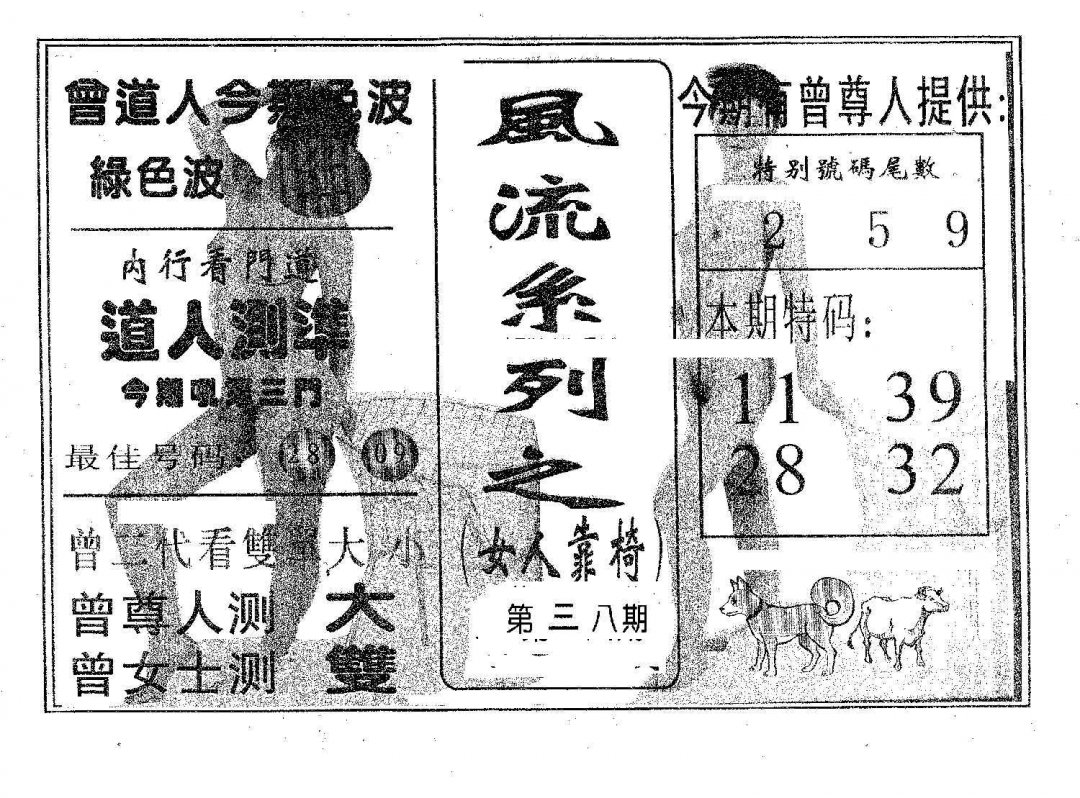 曾道人今期色波
綠色波
內行看門道
道人測準
今期 三門
最佳号码: 28 09
曾二代看雙單大小
曾尊人测 大
曾女士测 雙
風流系列之
(女人靠椅)
第三八期
今期有曾尊人提供:
特别號碼尾數
2 5 9
本期特码:
11 39
28 32